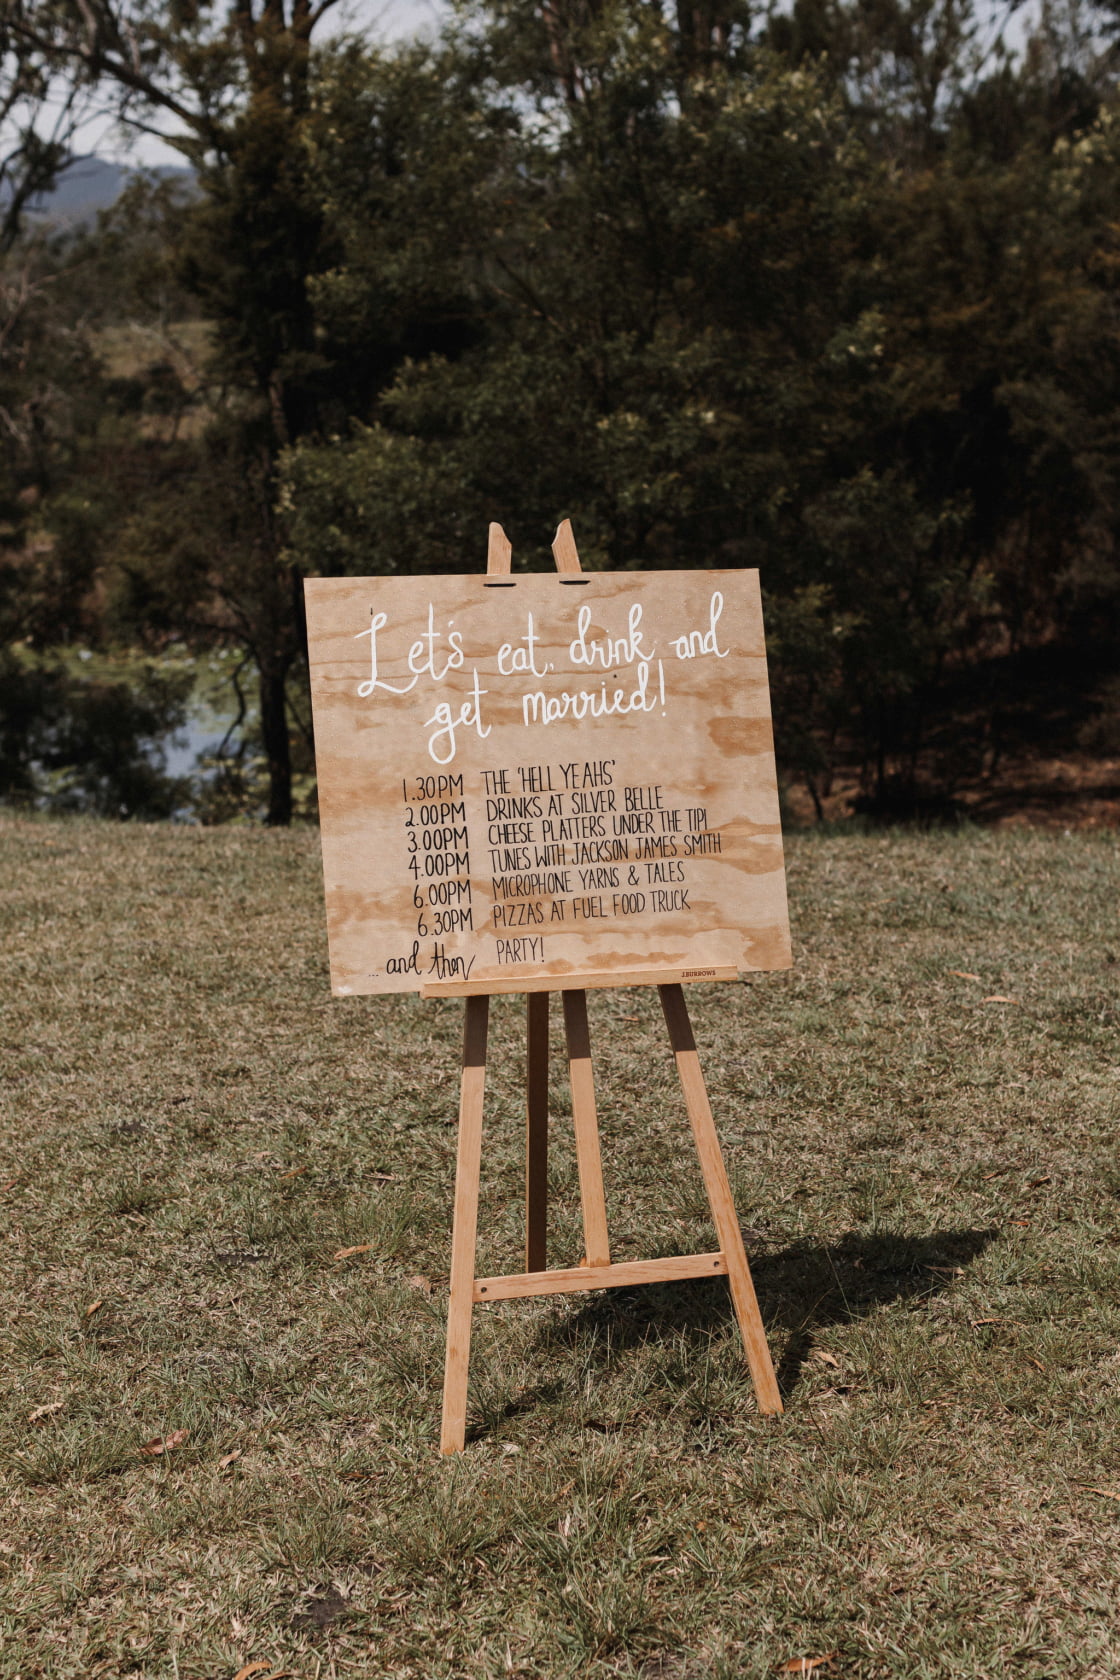 Let's eat, drink and
get married!
1.30PM THE 'HELL YEAHS'
2.00PM DRINKS AT SILVER BELLE
3.00PM CHEESE PLATTERS UNDER THE TIPI
4.00PM TUNES WITH JACKSON JAMES SMITH
6.00PM MICROPHONE YARNS & TALES
6.30PM PIZZAS AT FUEL FOOD TRUCK
... and then PARTY!
J.BURROWS